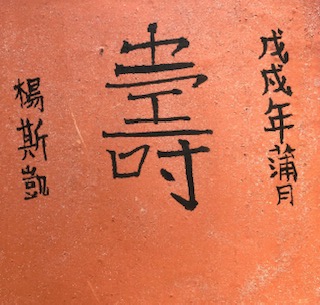 戊戌年蒲月
壽
楊斯凱